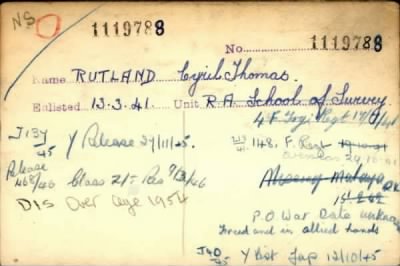 NS
1119788
No. 1119788
Name RUTLAND Cyril Thomas.
Enlisted 13.3.41. Unit R.A. School of Survey
J137/45 Y Release 27/11/45
1148, F. Regt
overseas
Release 468/46 Class 21- Res 46
Missing Malaya
DIS Over age 1954
P.O War Date unknown
Freed and in allied hands
45 Y List Jap 12/10/45